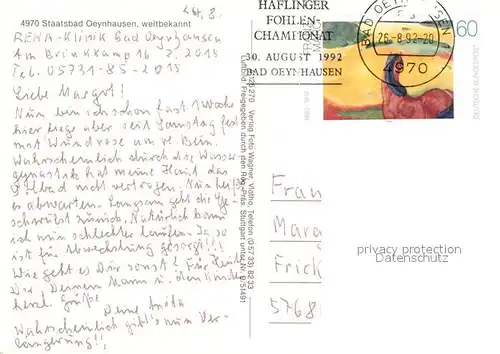 4970 Staatsbad Oeynhausen, weltbekannt
24.8.
REHA-Klinik Bad Oeynhausen
Am Brinkkamp 16 Z. 2013
Tel. 05731-85-2013
Liebe Margrit!
Nun bin ich schon fast 1 Woche
hier liege aber seit Samstag fest
mit Wundrose am re. Bein.
Wahrscheinlich durch die Wasser
gymnastik hat meine Haut das
nicht vertragen. Nun heißt
es abwarten. Langsam geht die Ge-
schwulst zurück. Natürlich kann
ich nun schlechter laufen. Ja, so
ist für Abwechslung gesorgt!!!
Wie geht es Dir sonst? Für heute
Dir, Deinem Mann u. den Kindern
herzl. Grüße
Deine Anita
Wahrscheinlich gibt's nun Ver-
längerung!!
Verlag Foto Wagner, Vlotho, Telefon (05733) 8233
Luftbild: Freigegeben durch den Reg.-Präs. Stuttgart unter Nr. 9/51491
HAFLINGER
FOHLEN-
CHAMPIONAT
30. AUGUST 1992
BAD OEYNHAUSEN
BAD OEYNHAUSEN
26.-8.92-20
4970
60
DEUTSCHE BUNDESPOST
FRANZ
MARC
Frau
Marg
Frick
5768
privacy protection
Datenschutz